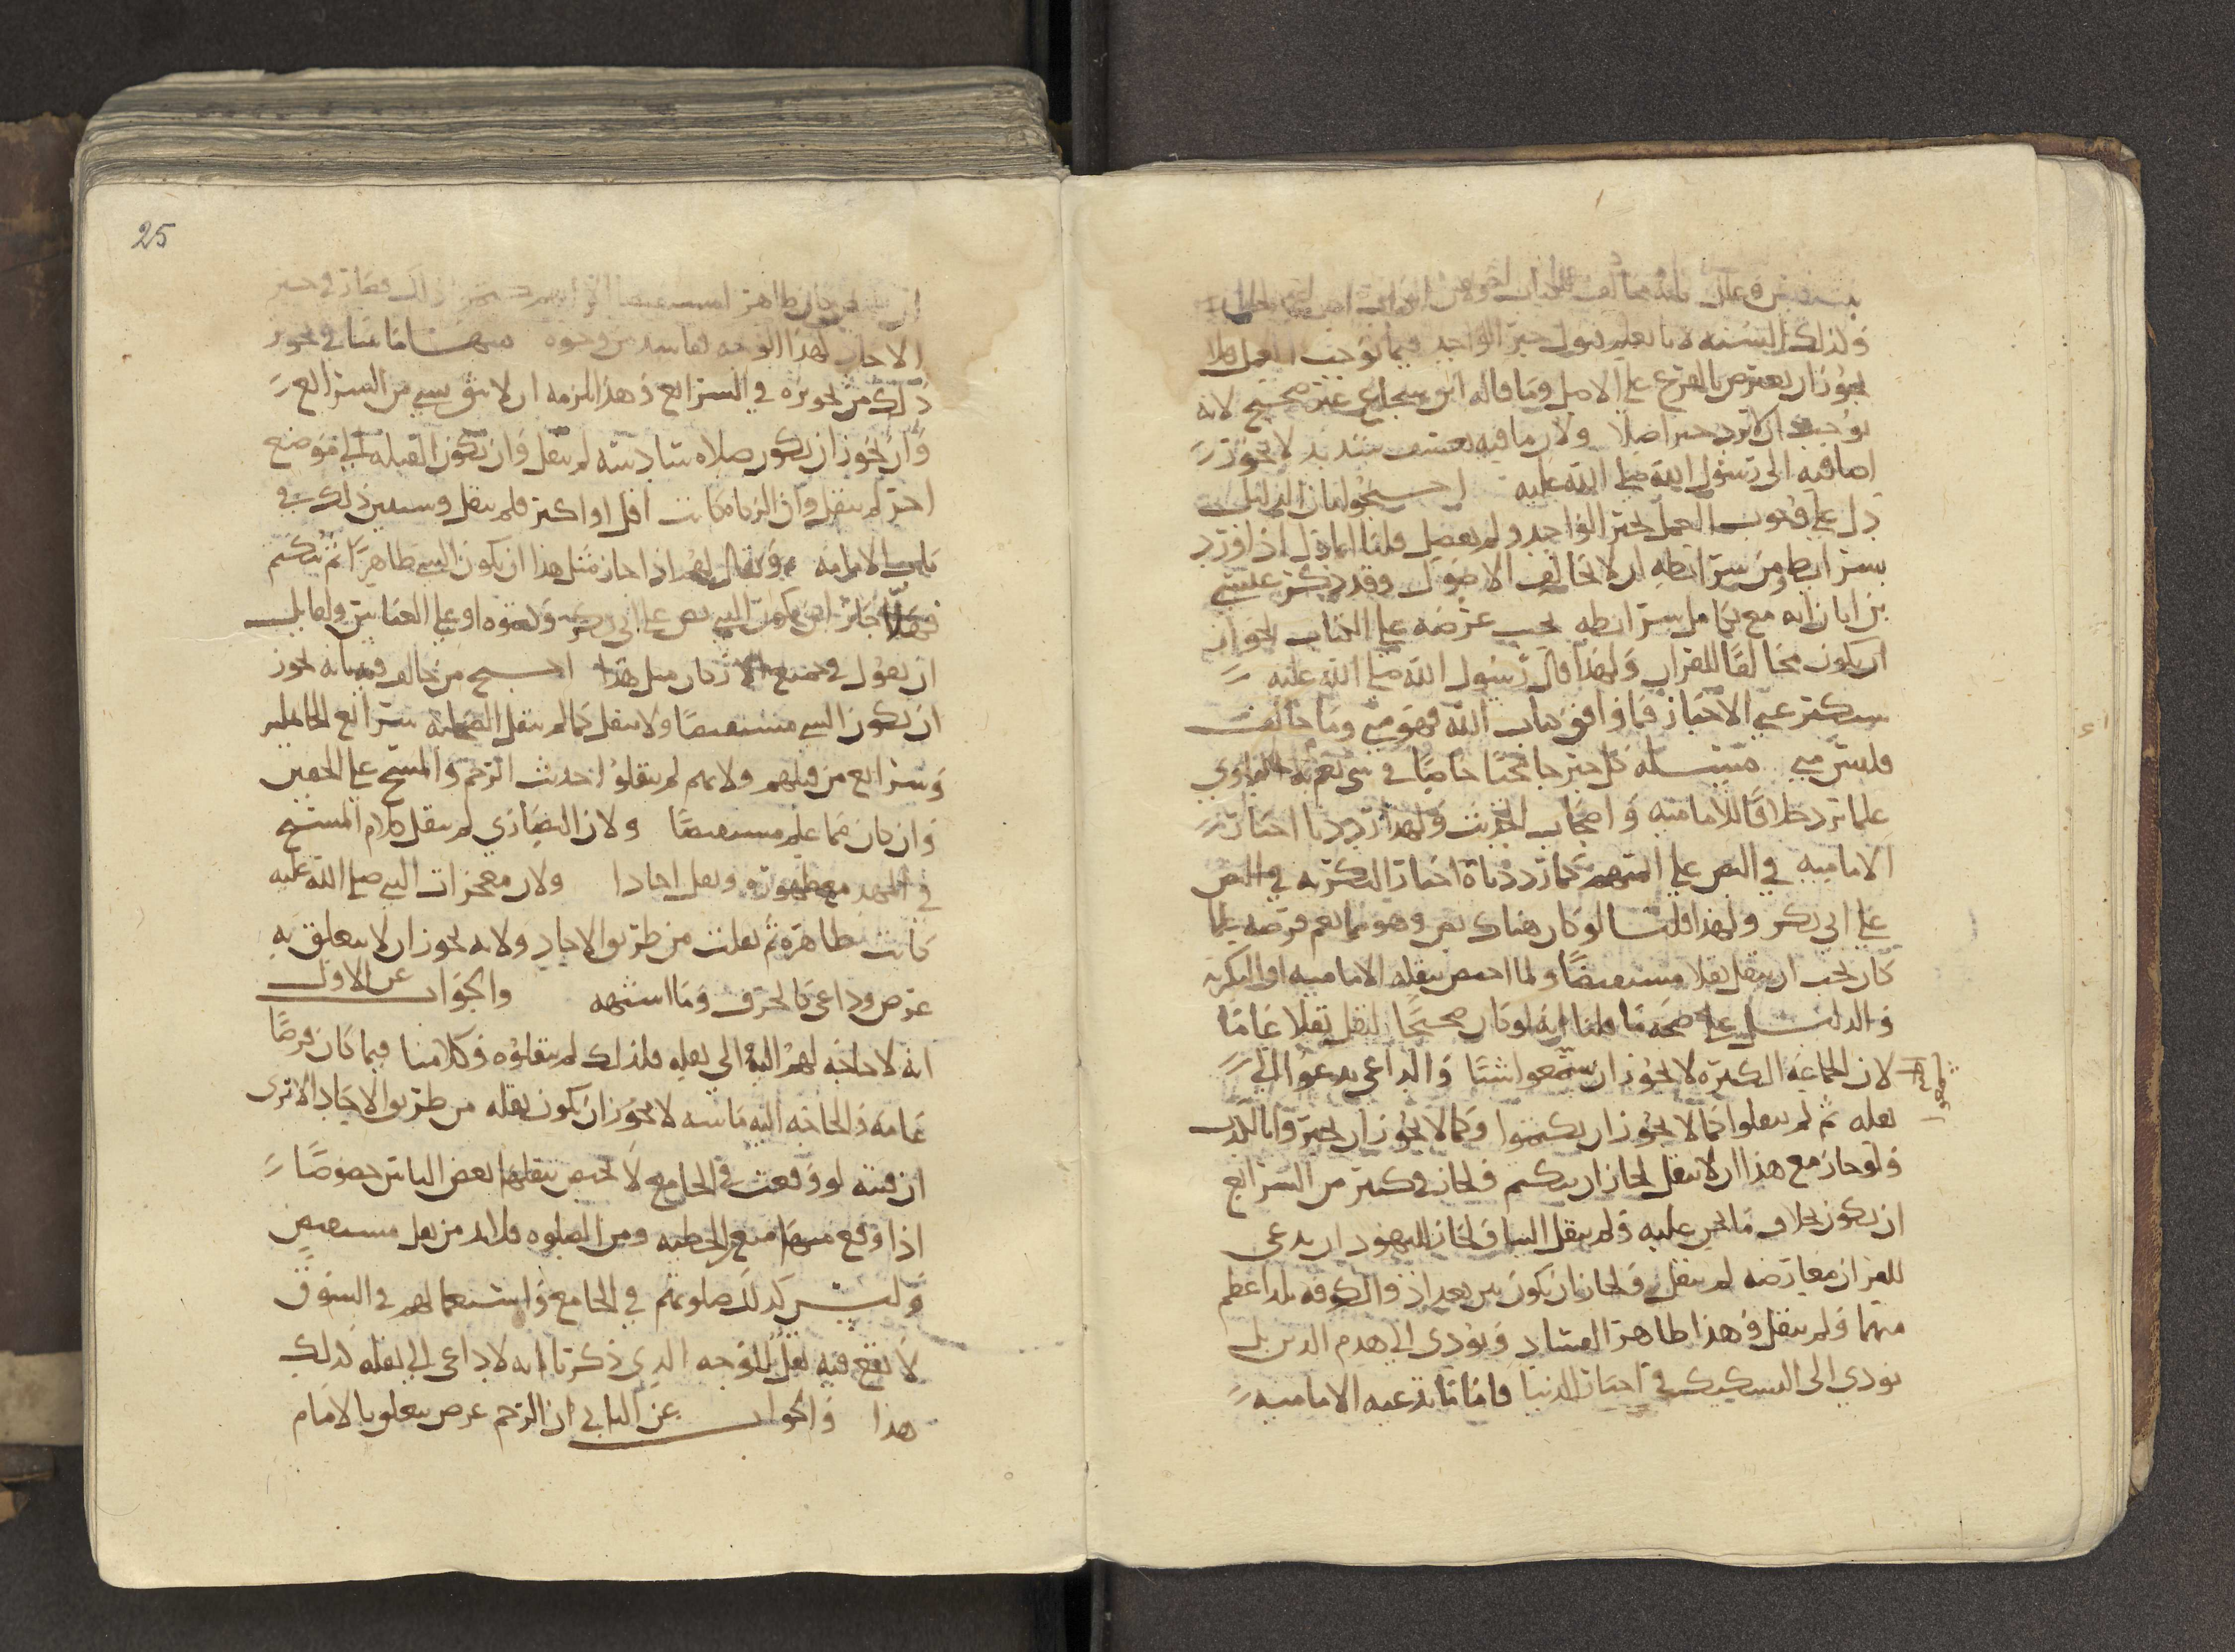 ولذلك السنة لانا نعلم قبول خبر الواحد فيما يوجب العمل فلا
يجوز ان يعترض بالفرع على الاصل وما قاله ابن شجاع غير صحيح لانه
يوجب ان لا يرد خبر اصلا ولان ما فيه تعسف شديد لا يجوز
اضافته الى رسول الله صلى الله عليه احتجوا بان الدليل
دل على وجوب العمل بخبر الواحد ولم يفصل قلنا انما دل اذا ورد
بشرايطه ومن شرايطه ان لا يخالف الاصول وقد ذكر عيسى
بن ابان انه مع تكامل شرايطه يجب عرضه على الكتاب لجواز
ان يكون مخالفا للقران ولهذا قال رسول الله صلى الله عليه
ستكثر علي الاحاديث فما وافق كتاب الله فهو مني وما خالفه
فليس مني مسئلة كل خبر جا مجيا خاصا في شي تعم به البلوى
علما ترد خلافا للامامية واصحاب الحديث ولهذا رددنا اخبار
الامامية في النص على ائمتهم كما رددنا اخبار البكرية في النص
على ابي بكر ولهذا قلنا لو كان هناك نص وهو مما يعم فرضه علما
كان يجب ان ينقل نقلا مستفيضا ولما اختص بنقله الامامية او البكرية
والدليل على صحة ما قلنا انه لو كان صحيحا لنقل نقلا عاما
لان الجماعة الكثيرة لا يجوز ان يسمعوا شيا والداعي يدعو الى
نقله ثم لم ينقلوا كما لا يجوز ان يكتموا وكما لا يجوز ان يخبروا بالكذب
ولو جاز مع هذا ان لا ينقل لجاز ان يكتم ولجاز في كثير من الشرايع
ان يكون بخلاف ما نحن عليه ولم ينقل الينا ولجاز لليهود ان يدعي
للقران معارضة لم ينقل ولجاز ان يكون بين بغداد والكوفة بلد اعظم
منهما ولم ينقل وهذا ظاهر الفساد ويودي الى هدم الدين بل
يودي الى التشكيك في اخبار الدنيا فاما ما تدعيه الامامية
25
الاحاد لهذا الوجه فاسد من وجوه منها ما بينا في تجويز
ذلك من تجويزه في الشرايع وهذا يلزمه ان لا يثق بشي من الشرايع
وان يجوز ان يكون صلاة سادسة لم تنقل وان تكون القبلة الى موضع
اخر لم ينقل وان الزكاة كانت اقل او اكثر فلم ينقل وسنبين ذلك في
باب الامامة ويقال لهم اذا جاز مثل هذا ان يكون النص ظاهرا ثم يكتم
فهلا جاز ان يكون النبي نص على ابي بكر ولم ينقلوه او على العباس ولقايل
ان يقول في جميع الاذكار مثل هذا احتج من خالف فيه بانه يجوز
ان يكون الشي مستفيضا ولا ينقل كما لم ينقل الصحابة شرايع الجاهلية
وشرايع من قبلهم ولانهم لم ينقلوا حديث الرجم والمسح على الخفين
وان كان مما علم مستفيضا ولان النصارى لم ينقل كلام المسيح
في المهد مع ظهوره ونقل احادا ولان معجزات النبي صلى الله عليه
كانت ظاهرة ثم نقلت من طريق الاحاد ولانه يجوز ان لا يتعلق به
غرض وداعي كالحرف وما اشبهه والجواب عن الاول
انه لا حاجة لهم اليه الى نقله فلذلك لم ينقلوه وكلامنا فيما كان فرضا
عاما والحاجة اليه ماسة لا يجوز ان يكون نقله من طريق الاحاد الا ترى
ان فتنة لو وقعت في الجامع لا يختص بنقلها بعض الناس خصوصا
اذا وقع منها منع الخطبة ومن الصلوة فلا بد من نقل مستفيض
وليس كذلك صلوتهم في الجامع واستعمالهم في السوق
لا يقع فيه نقل للوجه الذي ذكرنا انه لا داعي الى نقله كذلك
هذا والجواب عن الثاني ان الرجم غرض يتعلق بالامام